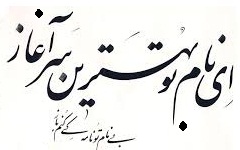 اِی نام تو بهترین سرآغاز
بی نام تو نامه کی کنم باز